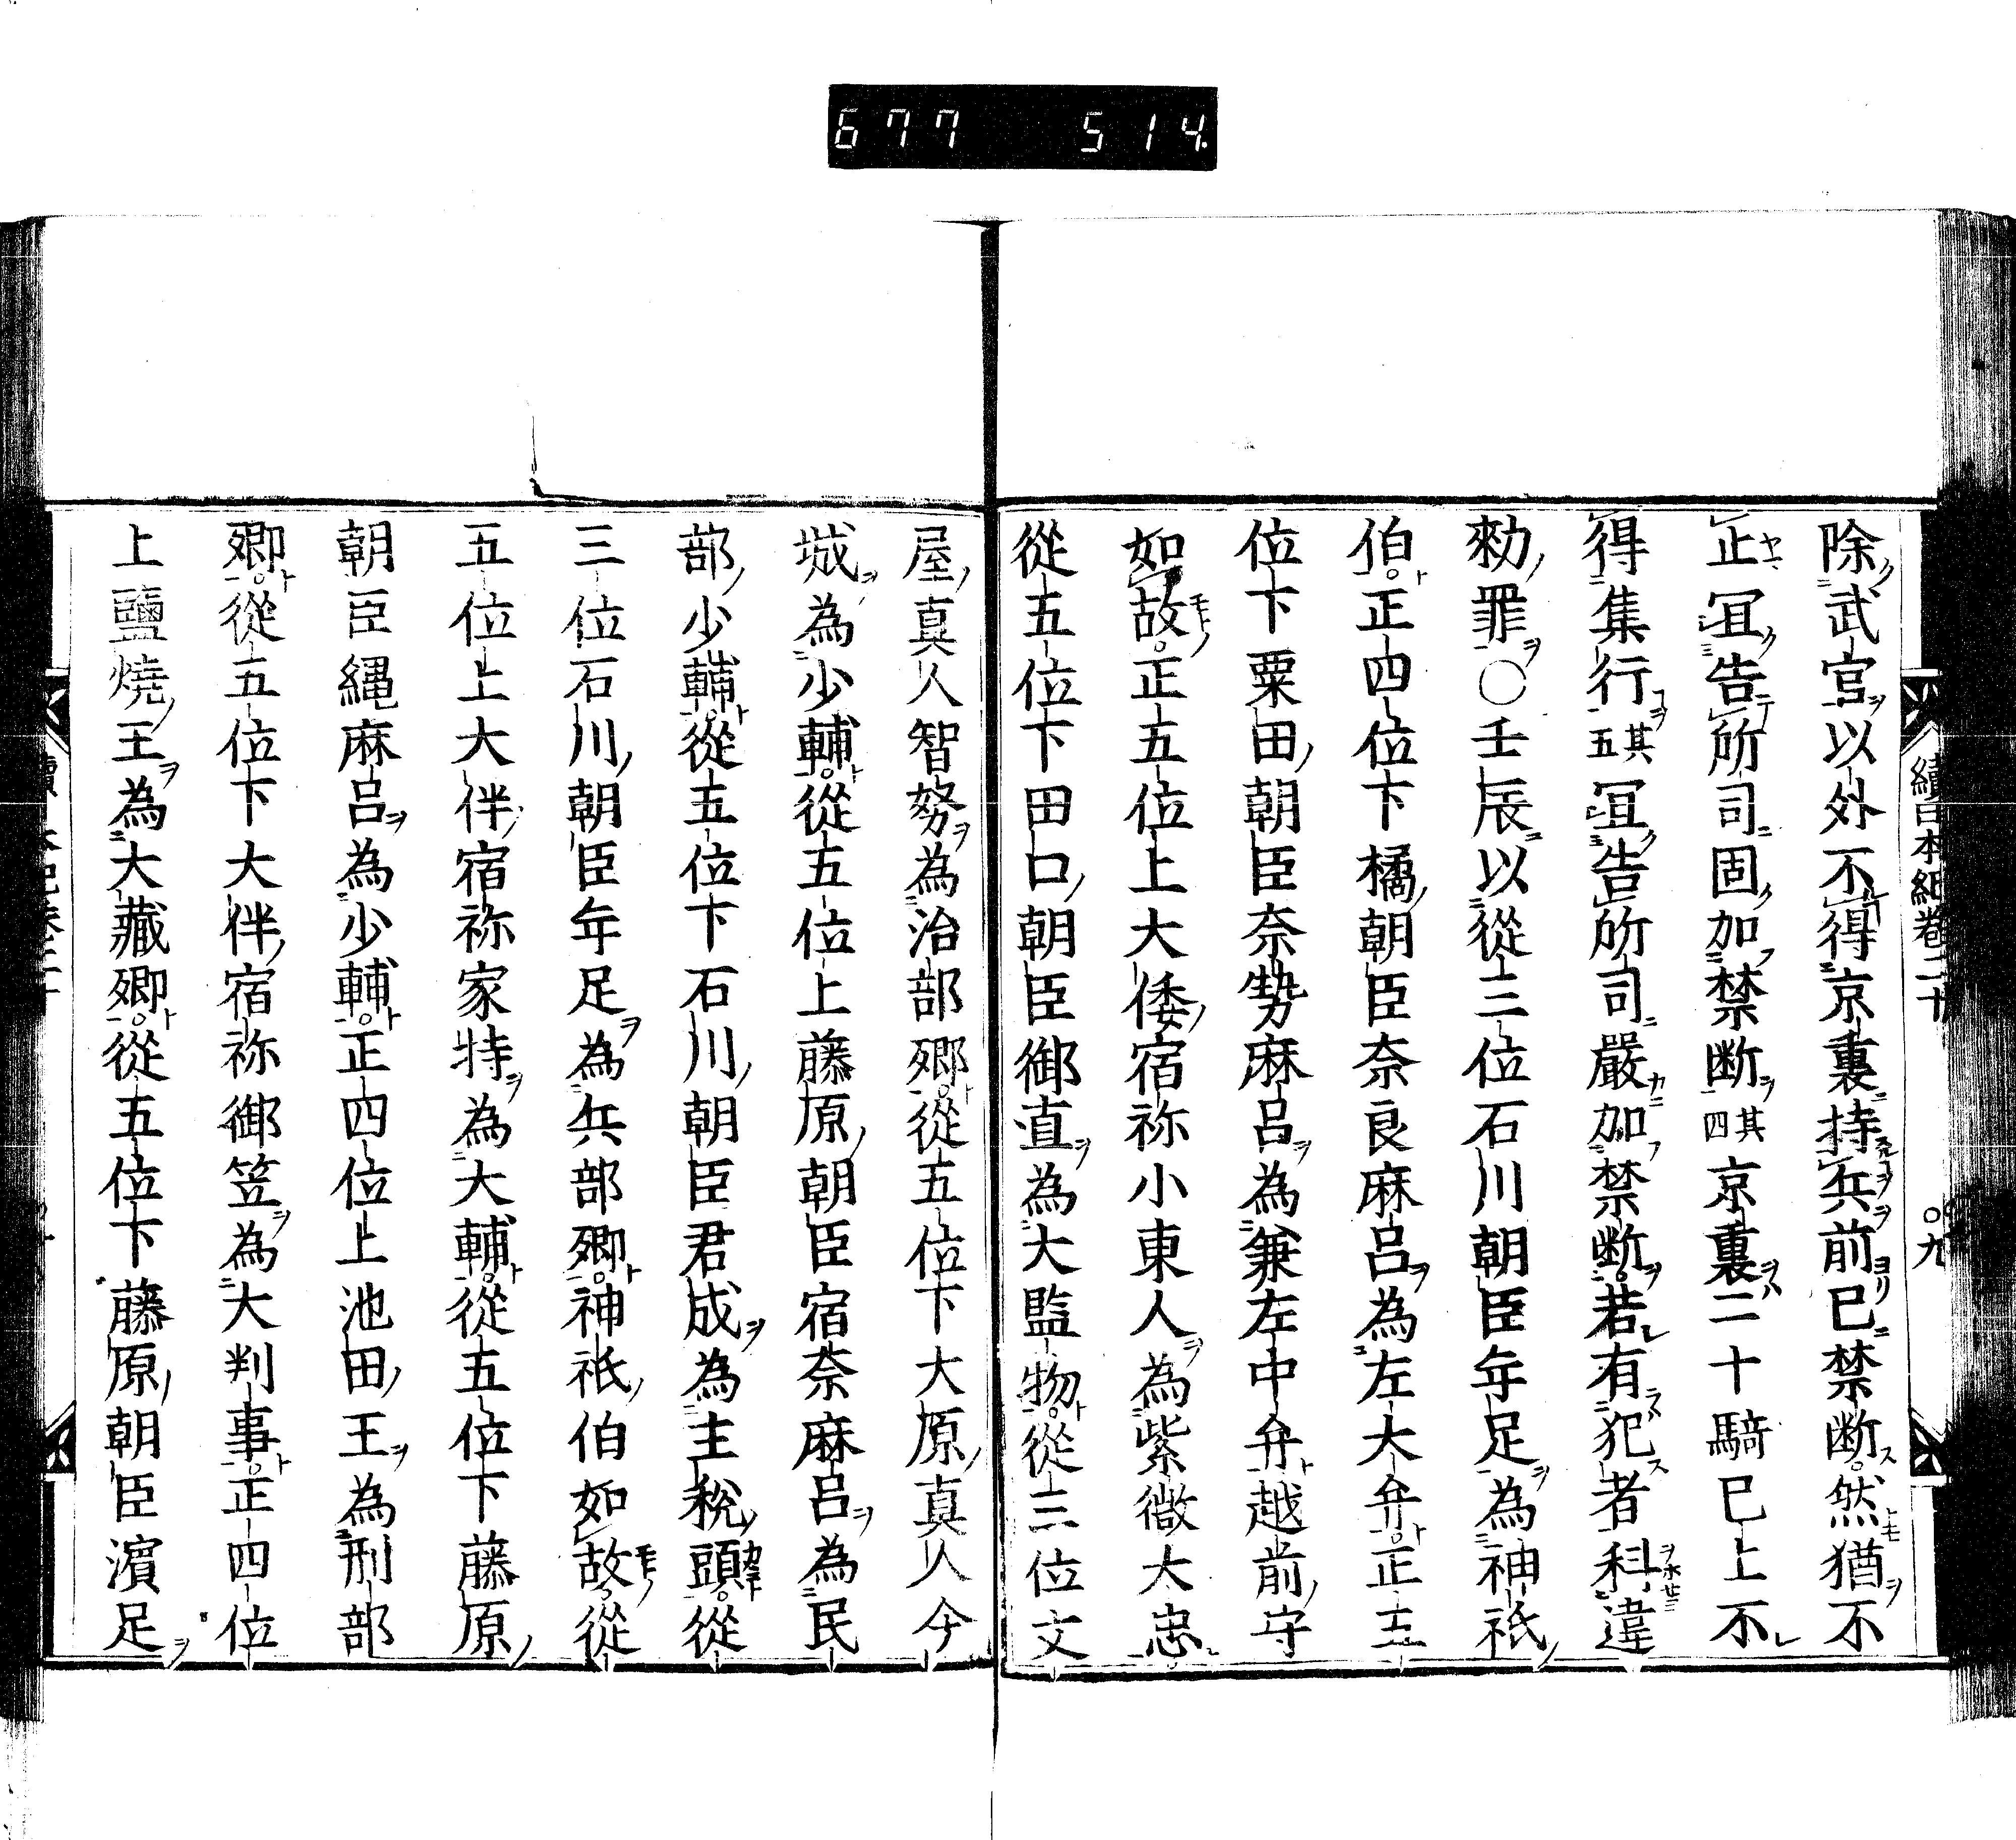 677 514
續日本紀卷二十
〇九
除武官以外不得京裏持兵前已禁断然猶不
正冝告所司固加禁断其四京裏二十騎已上不
得集行其五冝告所司嚴加禁断若有犯者科違
勑罪〇壬辰以從三位石川朝臣年足為神祇
伯正四位下橘朝臣奈良麻呂為左大弁正五
位下粟田朝臣奈勢麻呂為兼左中弁越前守
如故正五位上大倭宿祢小東人為紫微大忠
從五位下田口朝臣御直為大監物從三位文
屋真人智努為治部卿從五位下大原真人今
城為少輔從五位上藤原朝臣宿奈麻呂為民
部少輔從五位下石川朝臣君成為主稅頭從
三位石川朝臣年足為兵部卿神祇伯如故從
五位上大伴宿祢家特為大輔從五位下藤原
朝臣縄麻呂為少輔正四位上池田王為刑部
卿從五位下大伴宿祢御笠為大判事正四位
上鹽燒王為大藏卿從五位下藤原朝臣濱足